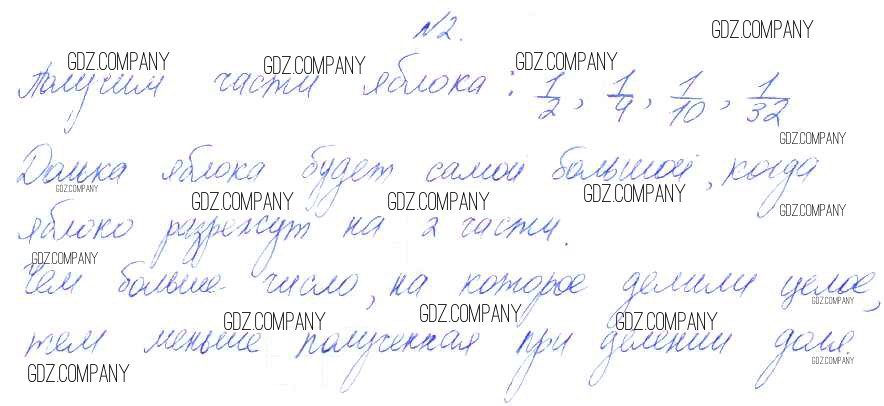 №2.
GDZ.COMPANY
GDZ.COMPANY GDZ.COMPANY GDZ.COMPANY
Получим части яблока: 1/2, 1/4, 1/10, 1/32
GDZ.COMPANY
Долька яблока будет самой большой, когда
GDZ.COMPANY GDZ.COMPANY GDZ.COMPANY GDZ.COMPANY GDZ.COMPANY
яблоко разрежут на 2 части.
GDZ.COMPANY
Чем больше число, на которое делили целое,
GDZ.COMPANY GDZ.COMPANY GDZ.COMPANY GDZ.COMPANY
тем меньше полученная при делении доля.
GDZ.COMPANY GDZ.COMPANY